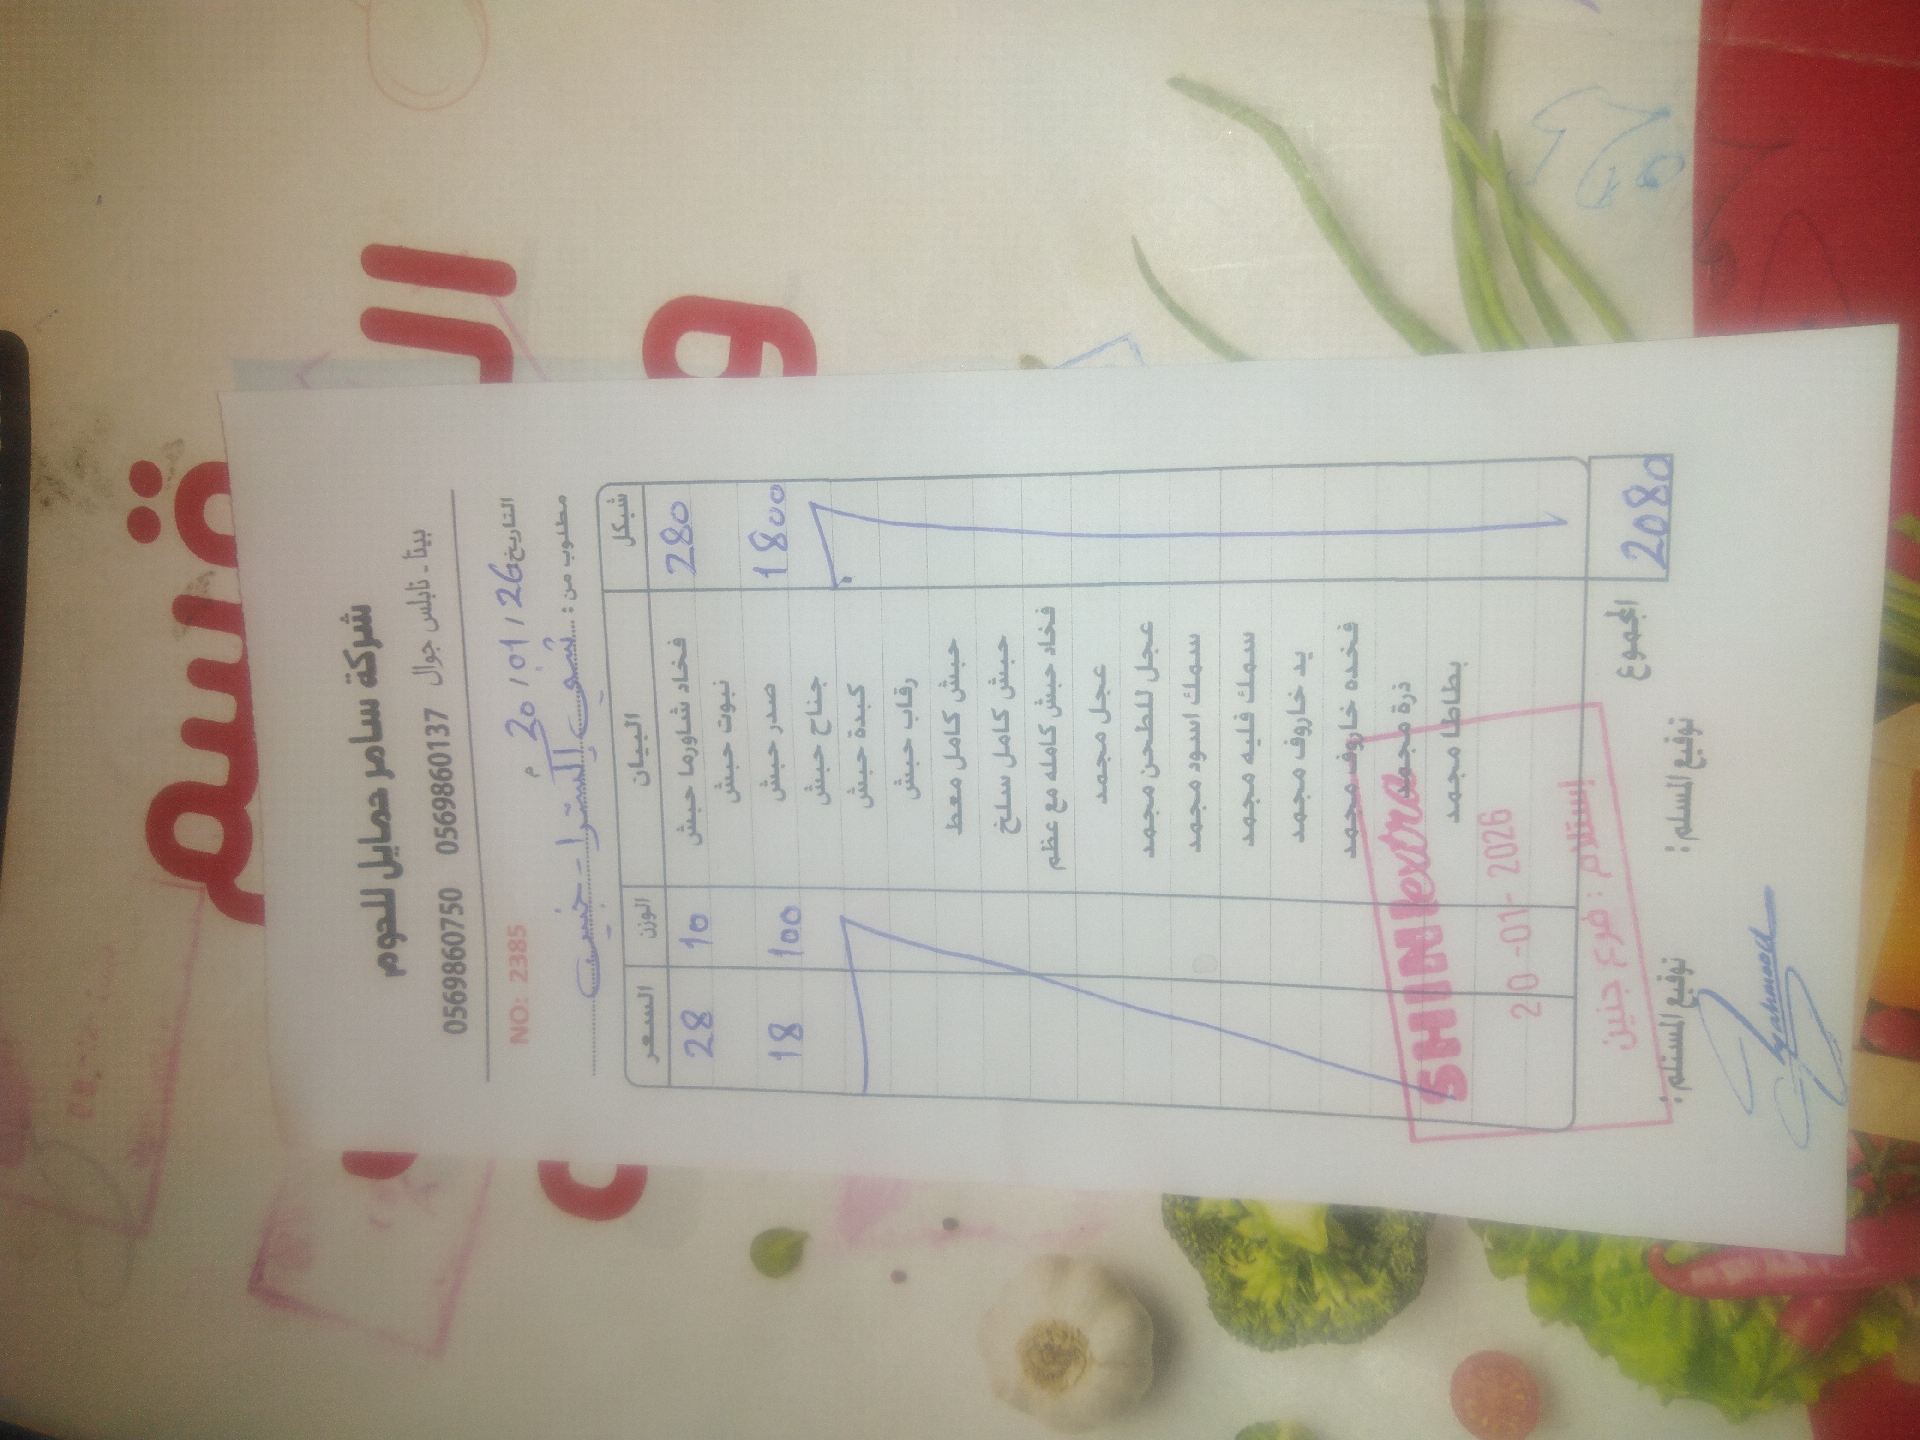 شركة سامر حمايل للحوم
بيتا - نابلس جوال 0569860137 0569860750
التاريخ 20 / 01 / 26 م
NO: 2385
مطلوب من : شني اكسترا - جنين
السعر الوزن البيان شيكل
28 10 فخاد شاورما حبش 280
نبوت حبش
18 100 صدر حبش 1800
جناح حبش
كبدة حبش
رقاب حبش
حبش كامل معط
حبش كامل سلخ
فخاد حبش كامله مع عظم
عجل مجمد
عجل للطحن مجمد
سمك اسود مجمد
سمك فليه مجمد
يد خاروف مجمد
فخده خاروف مجمد
ذرة مجمد
بطاطا مجمد
المجموع 2080
SHINI extra
20 -01- 2026
إستلام : فرع جنين
توقيع المستلم : توقيع المسلم :